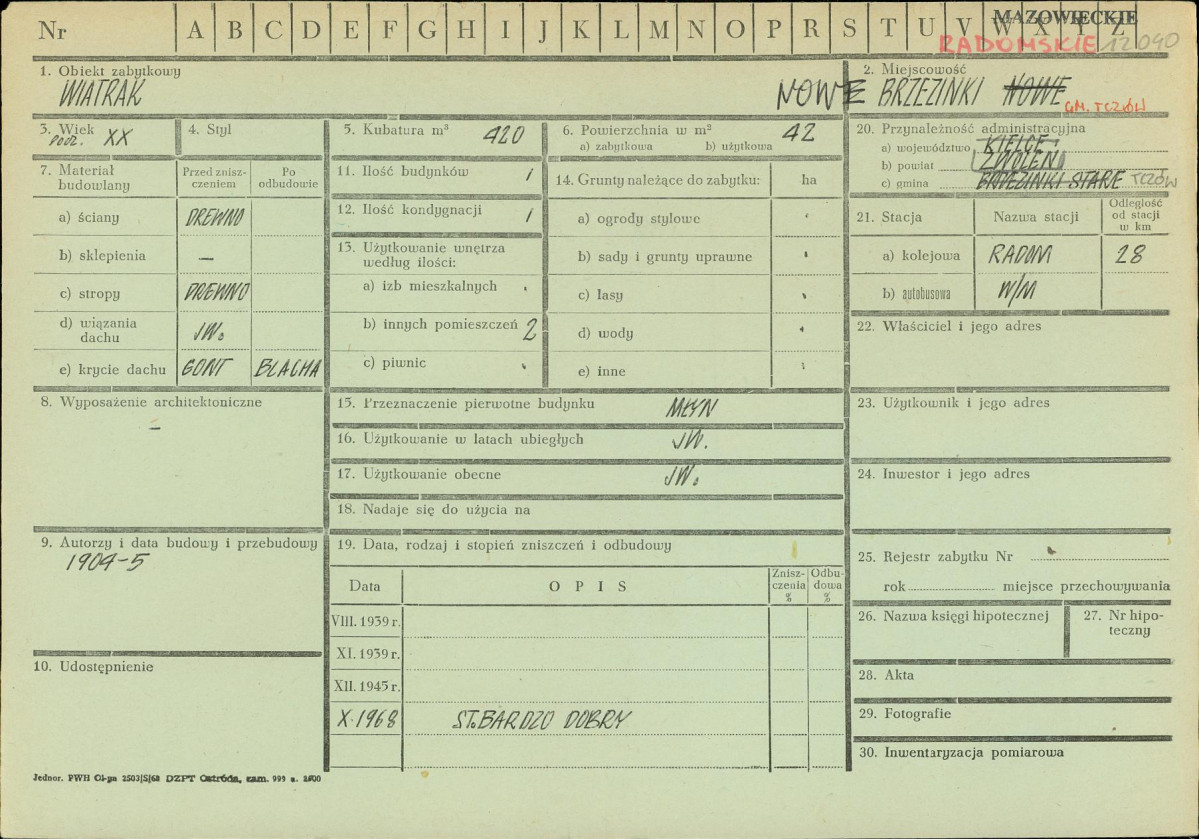 MAZOWIECKIE
Nr A B C D E F G H I J K L M N O P R S T U V W X Y Z
RADOMSKIE 12040
1. Obiekt zabytkowy
WIATRAK
2. Miejscowość
NOWE BRZEZINKI NOWE GM. TCZÓW
3. Wiek
POCZ. XX
4. Styl
5. Kubatura m³ 420
6. Powierzchnia w m² 42
a) zabytkowa b) użytkowa
20. Przynależność administracyjna
a) województwo KIELCE
b) powiat ZWOLEŃ
c) gmina BRZEZINKI STARE TCZÓW
7. Materiał budowlany
Przed zniszczeniem
Po odbudowie
a) ściany DREWNO
b) sklepienia —
c) stropy DREWNO
d) wiązania dachu JW.
e) krycie dachu GONT BLACHA
11. Ilość budynków 1
12. Ilość kondygnacji 1
13. Użytkowanie wnętrza
według ilości:
a) izb mieszkalnych
b) innych pomieszczeń 2
c) piwnic
14. Grunty należące do zabytku: ha
a) ogrody stylowe
b) sady i grunty uprawne
c) lasy
d) wody
e) inne
21. Stacja Nazwa stacji Odległość od stacji w km
a) kolejowa RADOM 28
b) autobusowa W/M
22. Właściciel i jego adres
8. Wyposażenie architektoniczne
—
15. Przeznaczenie pierwotne budynku MŁYN
16. Użytkowanie w latach ubiegłych JW.
17. Użytkowanie obecne JW.
18. Nadaje się do użycia na
23. Użytkownik i jego adres
24. Inwestor i jego adres
9. Autorzy i data budowy i przebudowy
1904-5
19. Data, rodzaj i stopień zniszczeń i odbudowy
Data OPIS Zniszczenia % Odbudowa %
VIII. 1939 r.
XI. 1939 r.
XII. 1945 r.
X. 1968 ST. BARDZO DOBRY
25. Rejestr zabytku Nr
rok miejsce przechowywania
26. Nazwa księgi hipotecznej
27. Nr hipoteczny
10. Udostępnienie
28. Akta
29. Fotografie
30. Inwentaryzacja pomiarowa
Jednor. PWH Ol-pn 2503/S/68 DZPT Ostróda, zam. 999 n. 2500